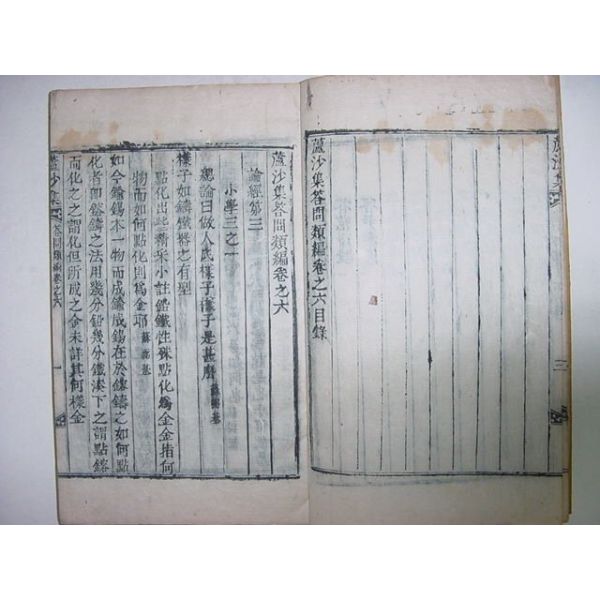 蘆沙集答問類編卷之六目錄
蘆沙集
三
蘆沙集答問類編卷之六
論經第三
小學三之一
總論曰做人底樣子樣子是甚麽
樣子如鑄鐵器之有型
點化出些精采小註鐵性殊點化爲金金指何
物而如何點化則爲金耶
如今鍮錫本一物而成鍮成錫在於鎔鑄之如何點
化者卽鎔鑄之法用幾分鉛幾分鐵湊下之謂點鎔
而化之之謂化但所成之金未詳其何樣金
蘆沙集 答問類編卷之六 一